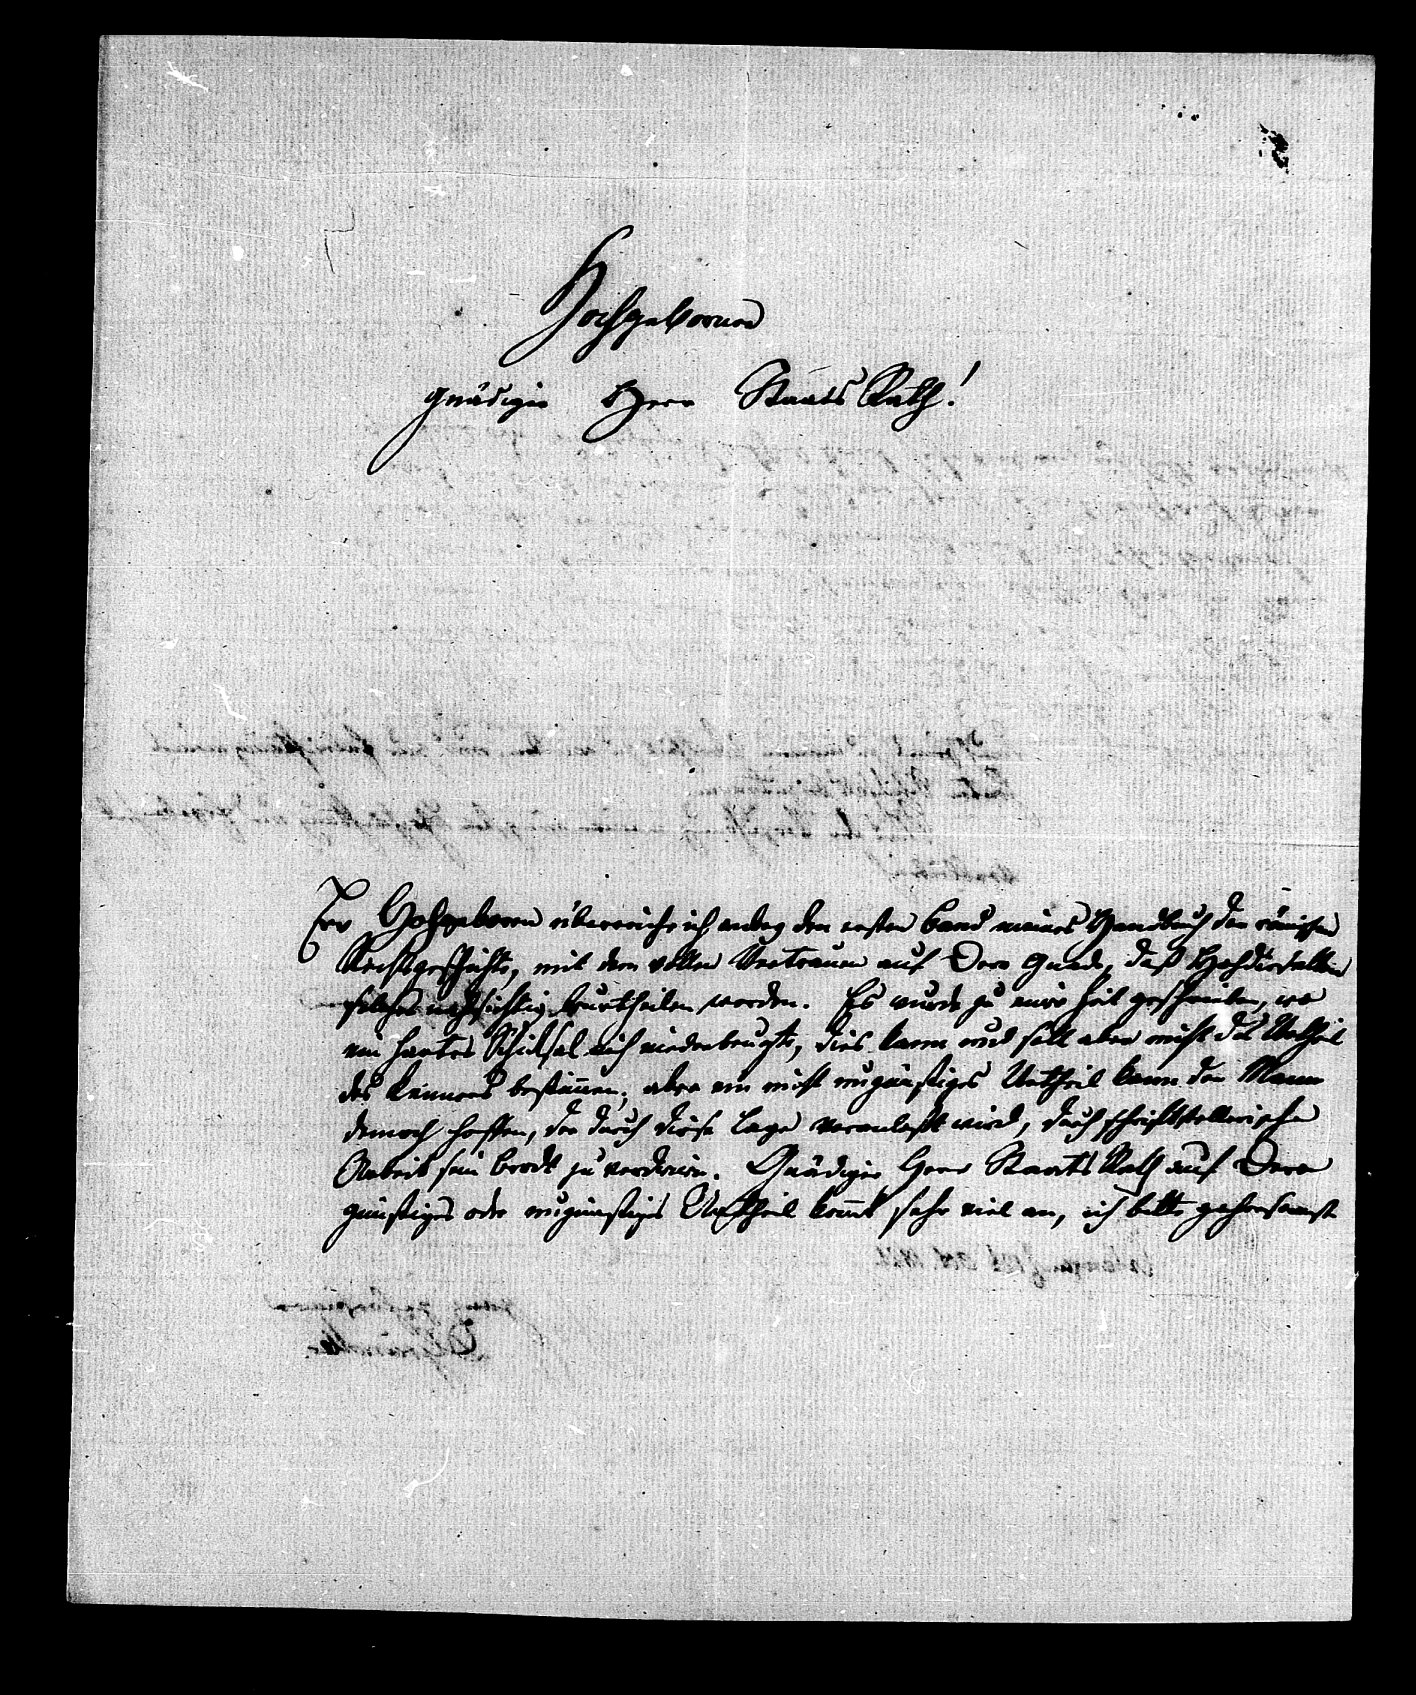 Hochgeborner
gnädiger Herr Staats Rath!
Euer Hochgeborn überreiche ich anbey den ersten Band meines Handbuch der römischen
Rechtsgeschichte, mit dem vollen Vertrauen auf Dero Gnade, daß Hochdieselben
solches nachsichtig beurtheilen werden. Es wurde zu einer Zeit geschrieben, wo
ein hartes Schicksal mich niederbeugte, dies kann und soll aber nicht das Urtheil
des Kenners bestimmen; aber ein nicht ungünstiges Urtheil kann der Mann
dennoch hoffen, der durch diese Lage veranlaßt wird, durch schriftstellerische
Arbeit sein Brodt zu verdienen. Gnädiger Herr Staats Rath auf Dero
günstiges oder ungünstiges Urtheil kommt sehr viel an, ich bitte gehorsamst